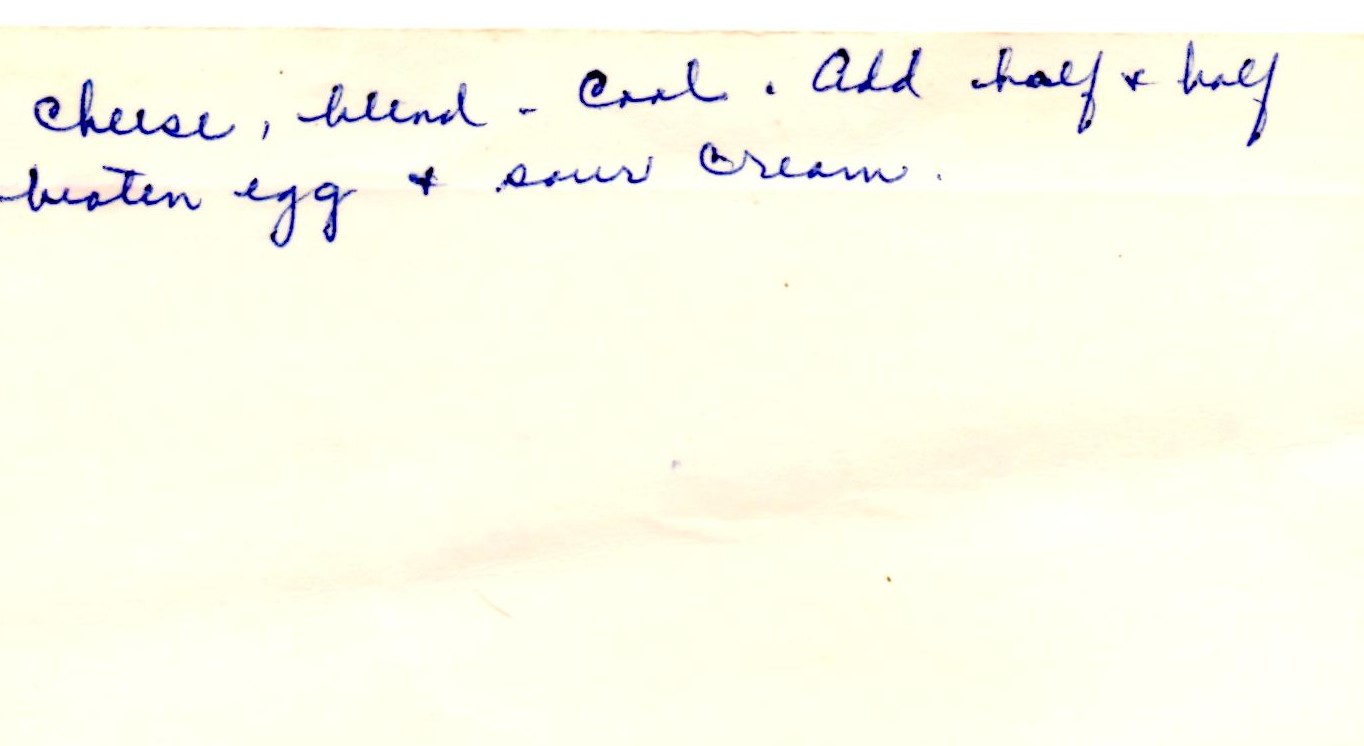 Cheese, blend - Cool. Add half & half
beaten egg & sour Cream.